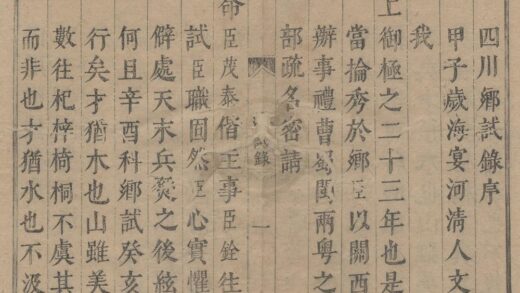 四川鄉試錄序
甲子歲海宴河清人文
我
上御極之二十三年也是
當掄秀於鄉臣以關西
辦事禮曹蜀閩兩粵之
部疏名密請
錄 一
命臣茂泰偕主事臣銓往
試臣職固然臣心實懼
僻處天末兵燹之後絃
何且辛酉科鄉試癸亥
行矣才猶木也山雖美
數往杞梓椅桐不虞其
而非也才猶水也不汲